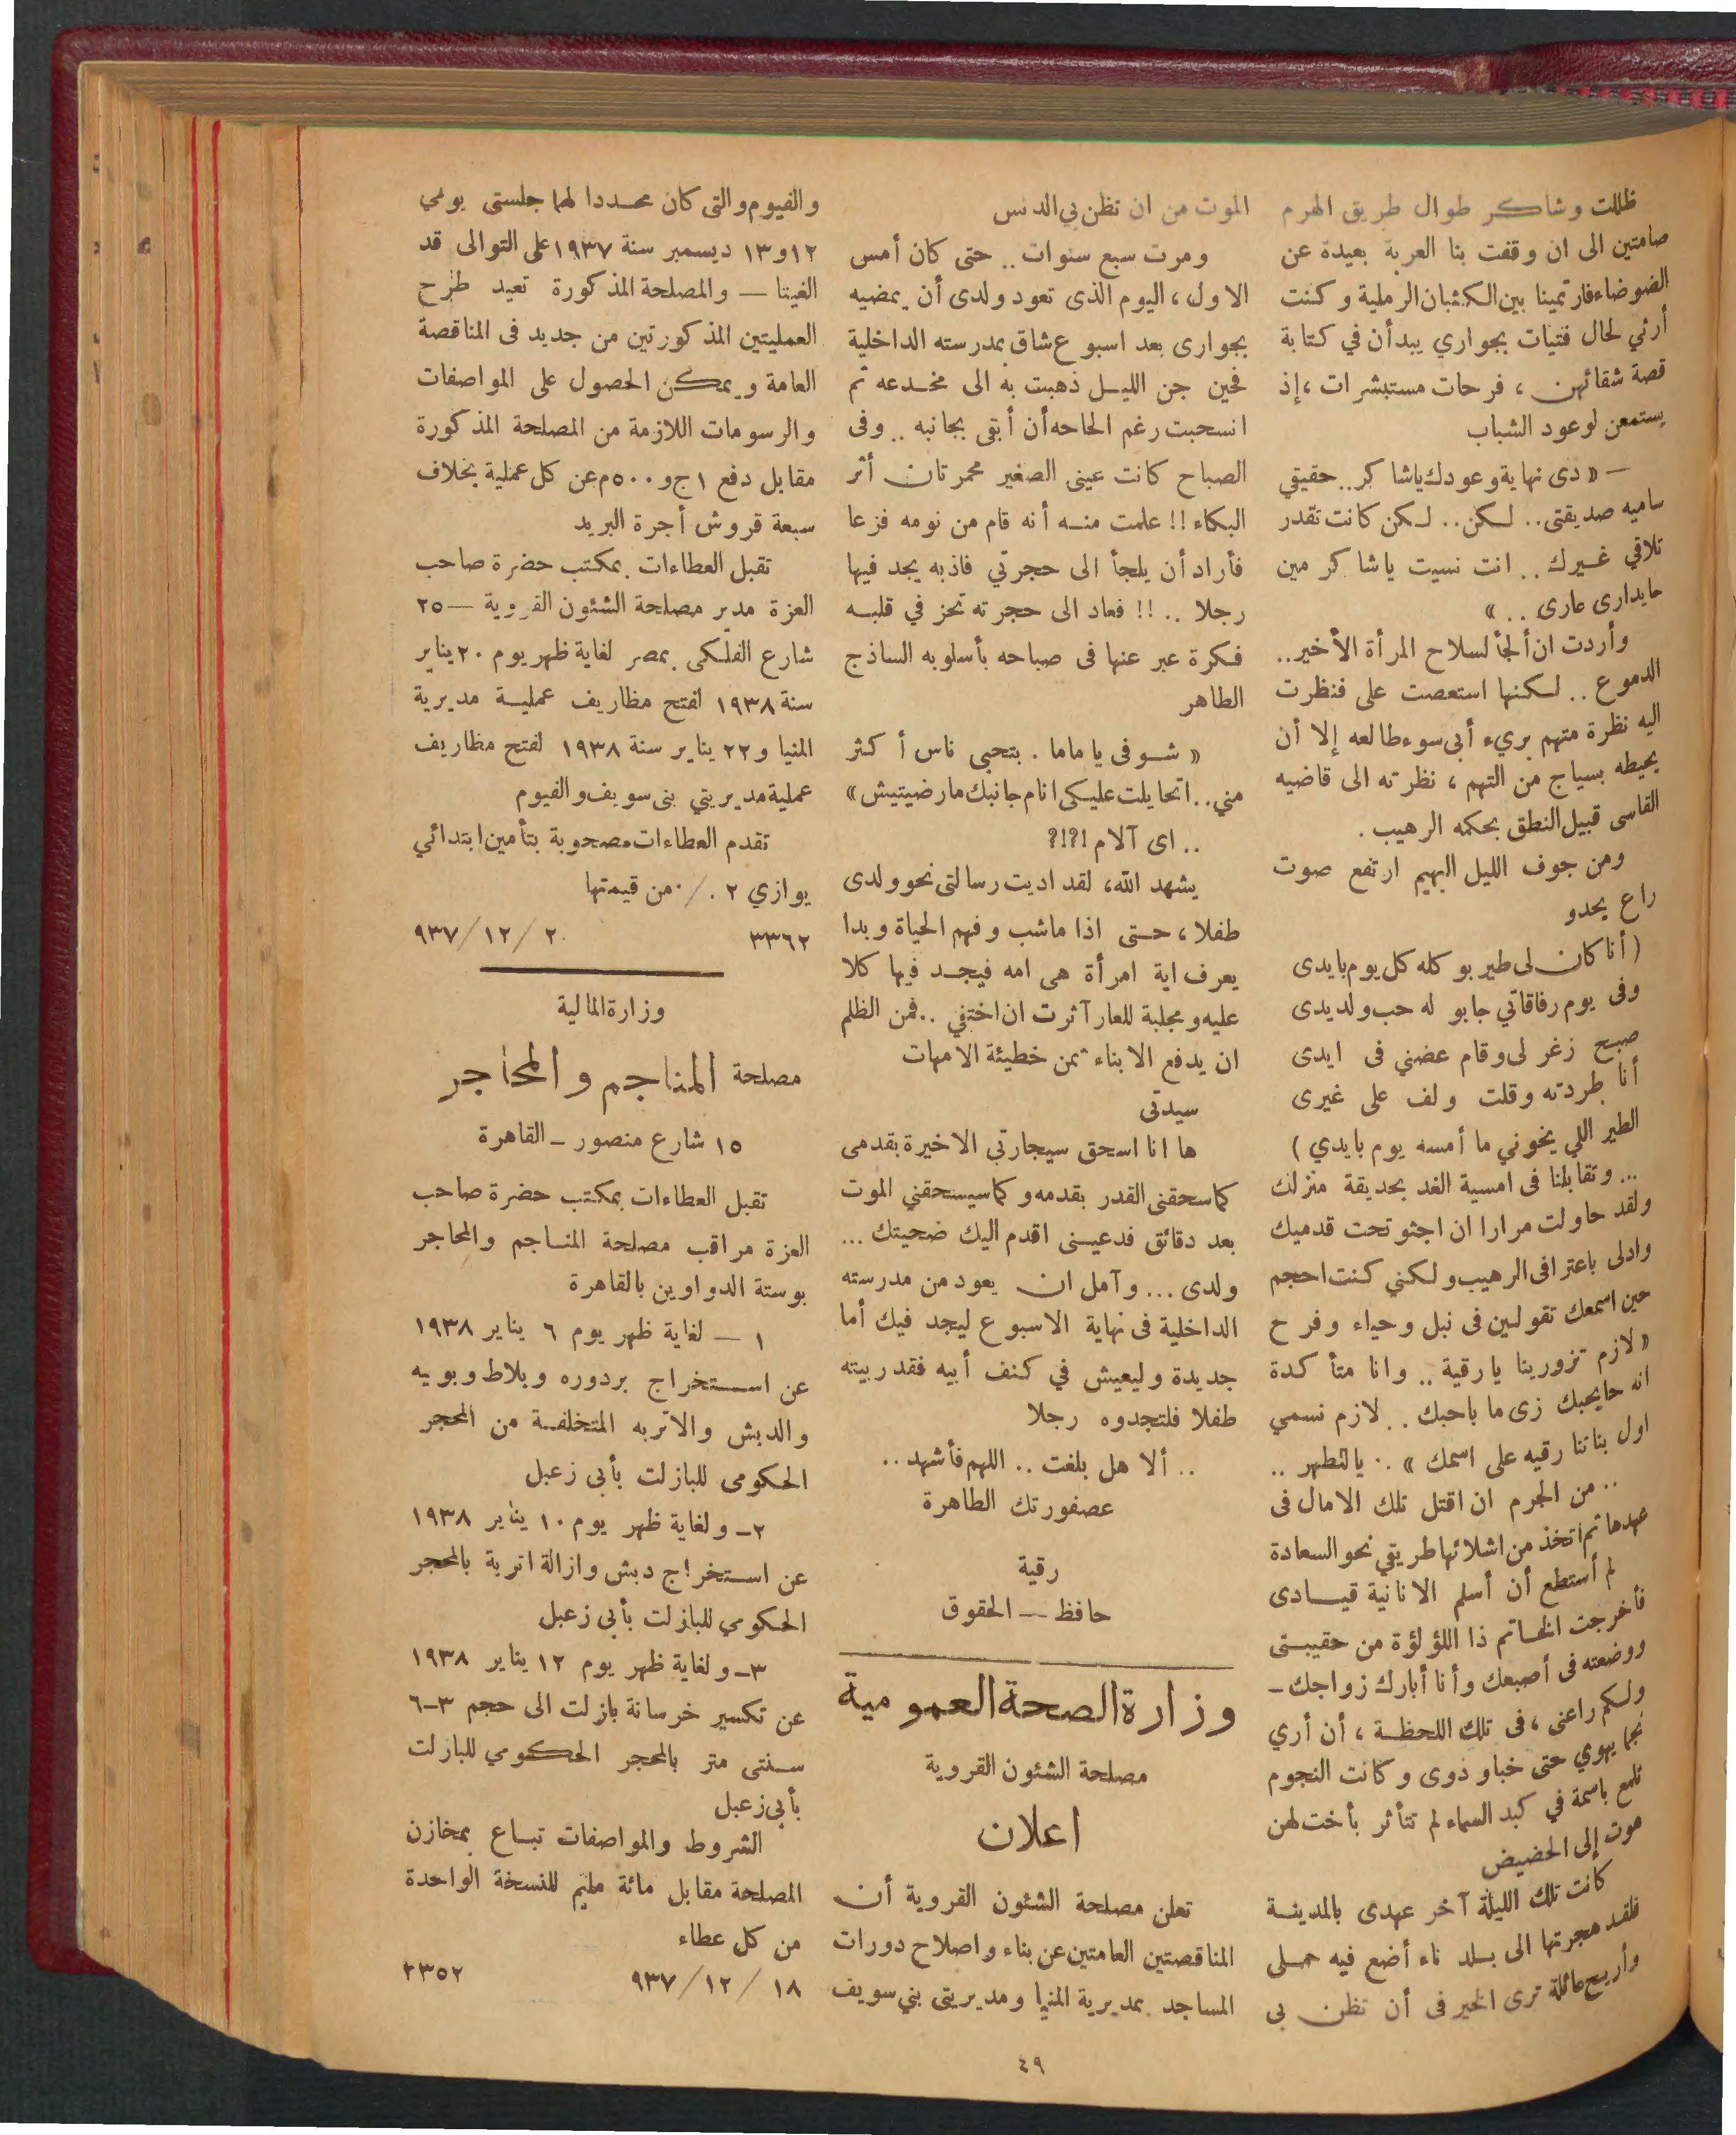 ظللت وشاكر طوال طريق الهرم
صامتين الى ان وقفت بنا العربة بعيدة عن
الضوضاء فارتمينا بين الكثبان الرملية وكنت
أرثي لحال فتيات بجواري يبدأن في كتابة
قصة شقائهن ، فرحات مستبشرات ، إذ
يستمعن لوعود الشباب
— « دى نهاية وعودك ياشاكر .. حقيقي
ساميه صديقتى .. لكن .. لكن كانت تقدر
تلاقي غيرك .. انت نسيت ياشاكر مين
حايدارى عارى .. »
وأردت ان ألجأ لسلاح المرأة الأخير ..
الدموع .. لكنها استعصت على فنظرت
اليه نظرة متهم بريء أبى سوء طالعه إلا أن
يحيطه بسياج من التهم ، نظرته الى قاضيه
القاسى قبيل النطق بحكمه الرهيب .
ومن جوف الليل البهيم ارتفع صوت
راع يحدو
( أنا كان لى طير بوكله كل يوم بايدى
وفى يوم رفاقاتي جابو له حب ولديدى
صبح زغر لى وقام عضني فى ايدى
أنا طردته وقلت ولف على غيرى
الطير اللي يخوني ما أمسه يوم بايدي )
... وتقابلنا فى امسية الغد بحديقة منزلك
ولقد حاولت مرارا ان اجثو تحت قدميك
وادلى باعترافى الرهيب ولكني كنت احجم
حين اسمعك تقولين فى نبل وحياء وفرح
« لازم تزورينا يا رقية .. وانا متأكدة
انه حايحبك زى ما باحبك .. لازم نسمي
اول بناتنا رقيه على اسمك » .. يا للطهر ..
.. من الجرم ان اقتل تلك الامال فى
عهدها ثم اتخذ من اشلائها طريقي نحو السعادة
لم أستطع أن أسلم الانانية قيادى
فأخرجت الخاتم ذا اللؤلؤة من حقيبتى
ووضعته فى أصبعك وأنا أبارك زواجك —
ولكم راعنى ، فى تلك اللحظة ، أن أري
نجما يهوي حتى خبا وذوى وكانت النجوم
تلمع باسمة في كبد السماء لم تتأثر بأخت لهن
هوت إلى الحضيض
كانت تلك الليلة آخر عهدى بالمدينة
فلقد هجرتها الى بلد ناء أضع فيه حملى
وأريح عائلة ترى الخير فى أن تظن بى
الموت من ان تظن بي الدنس
ومرت سبع سنوات .. حتى كان أمس
الاول ، اليوم الذى تعود ولدى أن يمضيه
بجوارى بعد اسبوع شاق بمدرسته الداخلية
فحين جن الليل ذهبت به الى مخدعه ثم
انسحبت رغم الحاحه أن أبقى بجانبه .. وفى
الصباح كانت عينى الصغير محمرتان أثر
البكاء !! علمت منه أنه قام من نومه فزعا
فأراد أن يلجأ الى حجرتي فاذ به يجد فيها
رجلا .. !! فعاد الى حجرته تحز في قلبه
فكرة عبر عنها فى صباحه بأسلوبه الساذج
الطاهر
« شوفى يا ماما . بتحبى ناس أكثر
مني .. اتحايلت عليكى انام جانبك مارضيتيش »
.. اى آلام !؟!؟
يشهد الله ، لقد اديت رسالتى نحو ولدى
طفلا ، حتى اذا ماشب وفهم الحياة وبدا
يعرف اية امرأة هى امه فيجد فيها كلا
عليه ومجلبة للعار آثرت ان اختفي .. فمن الظلم
ان يدفع الابناء ثمن خطيئة الامهات
سيدتى
ها انا اسحق سيجارتي الاخيرة بقدمى
كما سحقنى القدر بقدمه وكما سيسحقني الموت
بعد دقائق فدعينى اقدم اليك ضحيتك ...
ولدى ... وآمل ان يعود من مدرسته
الداخلية فى نهاية الاسبوع ليجد فيك أما
جديدة وليعيش في كنف أبيه فقد ربيته
طفلا فلتجدوه رجلا
.. ألا هل بلغت .. اللهم فأشهد ..
عصفورتك الطاهرة
رقية
حافظ — الحقوق
وزارة الصحة العمومية
مصلحة الشئون القروية
اعلان
تعلن مصلحة الشئون القروية أن
المناقصتين العامتين عن بناء واصلاح دورات
المساجد بمديرية المنيا ومديريتى بني سويف
والفيوم والتى كان محددا لهما جلستى يومي
١٢ و١٣ ديسمبر سنة ١٩٣٧ على التوالى قد
الغيتا — والمصلحة المذكورة تعيد طرح
العمليتين المذكورتين من جديد فى المناقصة
العامة ويمكن الحصول على المواصفات
والرسومات اللازمة من المصلحة المذكورة
مقابل دفع ١ ج و ٥٠٠ م عن كل عملية بخلاف
سبعة قروش أجرة البريد
تقبل العطاءات بمكتب حضرة صاحب
العزة مدير مصلحة الشئون القروية — ٢٥
شارع الفلكى بمصر لغاية ظهر يوم ٢٠ يناير
سنة ١٩٣٨ لفتح مظاريف عملية مديرية
المنيا و ٢٢ يناير سنة ١٩٣٨ لفتح مظاريف
عملية مديريتي بنى سويف والفيوم
تقدم العطاءات مصحوبة بتأمين ابتدائي
يوازي ٢ ٠/٠ من قيمتها
٣٣٦٢ ٢٠ / ١٢ / ٩٣٧
وزارة المالية
مصلحة المناجم والمحاجر
١٥ شارع منصور — القاهرة
تقبل العطاءات بمكتب حضرة صاحب
العزة مراقب مصلحة المناجم والمحاجر
بوستة الدواوين بالقاهرة
١ — لغاية ظهر يوم ٦ يناير ١٩٣٨
عن استخراج بردوره وبلاط وبويه
والدبش والاتربه المتخلفة من المحجر
الحكومى للبازلت بأبى زعبل
٢ — ولغاية ظهر يوم ١٠ يناير ١٩٣٨
عن استخراج دبش وازالة اتربة بالمحجر
الحكومي للبازلت بأبى زعبل
٣ — ولغاية ظهر يوم ١٢ يناير ١٩٣٨
عن تكسير خرسانة بازلت الى حجم ٣—٦
سنتى متر بالمحجر الحكومي للبازلت
بأبى زعبل
الشروط والمواصفات تباع بمخازن
المصلحة مقابل مائة مليم للنسخة الواحدة
من كل عطاء
١٨ / ١٢ / ٩٣٧ ٣٣٥٢
٤٩